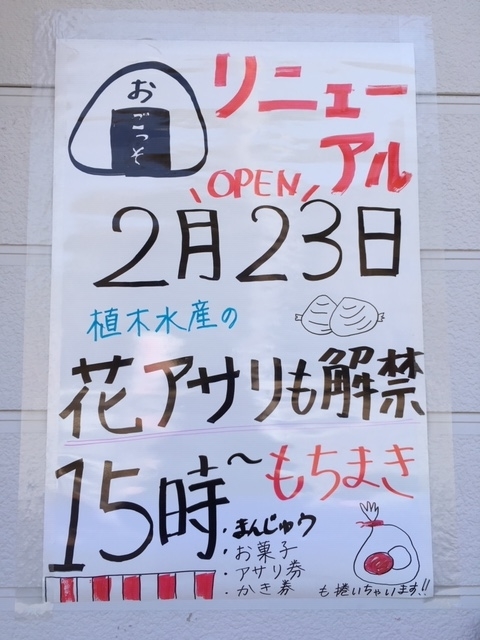 おごっそ
リニューアル
OPEN
2月23日
植木水産の
花アサリも解禁
15時~もちまき
・まんじゅう
・お菓子
・アサリ券
・かき券
も捲いちゃいます!!